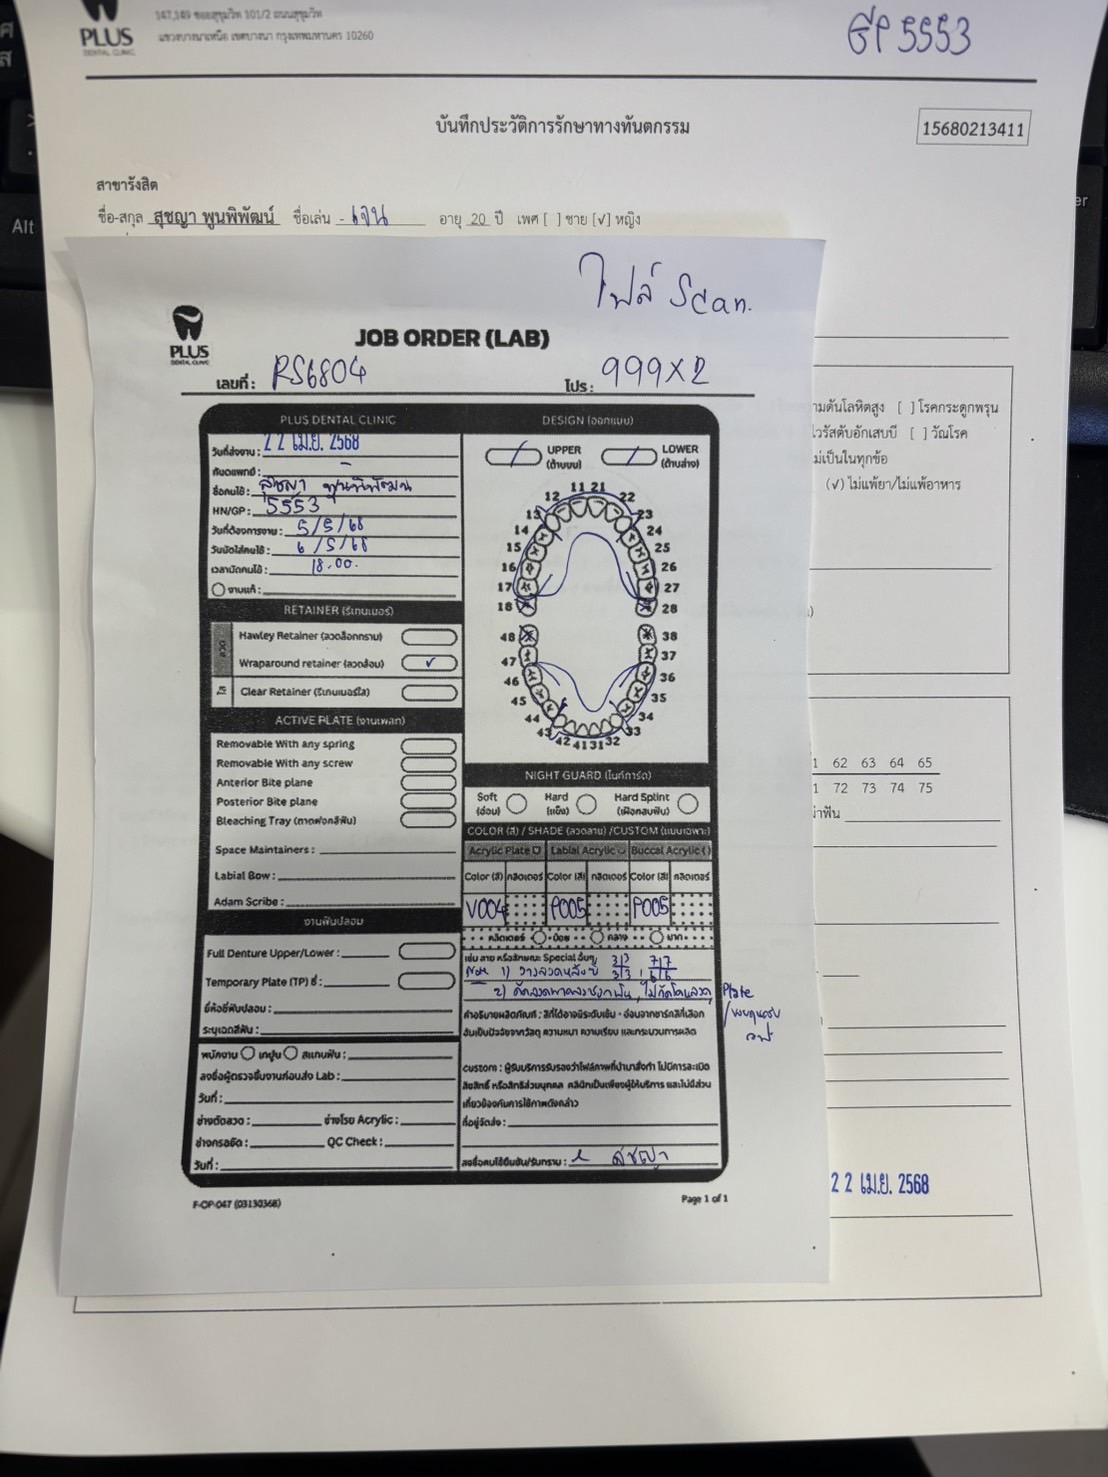 PLUS
DENTAL CLINIC
147,149 ซอยสุขุมวิท 101/2 ถนนสุขุมวิท
แขวงบางนาเหนือ เขตบางนา กรุงเทพมหานคร 10260
GP 5553
บันทึกประวัติการรักษาทางทันตกรรม
15680213411
สาขารังสิต
ชื่อ-สกุล สุชญา พูนพิพัฒน์ ชื่อเล่น - เจน อายุ 20 ปี เพศ [ ] ชาย [√] หญิง
ไฟล์ Scan.
PLUS
DENTAL CLINIC
JOB ORDER (LAB)
เลขที่ : RS6804 โปร : 999X2
PLUS DENTAL CLINIC
วันที่ส่งงาน : 22 เม.ย. 2568
ทันตแพทย์ : -
ชื่อคนไข้ : สุชญา พูนพิพัฒน์
HN/GP : 5553
วันที่ต้องการงาน : 5/5/68
วันนัดใส่คนไข้ : 6/5/68
เวลานัดคนไข้ : 18.00.
งานแก้ :
RETAINER (รีเทนเนอร์)
ลวด
Hawley Retainer (ลวดล็อกกราม)
Wraparound retainer (ลวดอ้อม) ✓
ใส
Clear Retainer (รีเทนเนอร์ใส)
ACTIVE PLATE (งานเพลท)
Removable With any spring
Removable With any screw
Anterior Bite plane
Posterior Bite plane
Bleaching Tray (ถาดฟอกสีฟัน)
Space Maintainers :
Labial Bow :
Adam Scribe :
งานฟันปลอม
Full Denture Upper/Lower :
Temporary Plate (TP) ซี่ :
ยี่ห้อซี่ฟันปลอม :
ระบุเฉดสีฟัน :
พนักงาน เทปูน สแกนฟัน :
ลงชื่อผู้ตรวจชิ้นงานก่อนส่ง Lab :
วันที่ :
ช่างดัดลวด : ช่างโรย Acrylic :
ช่างกรอขัด : QC Check :
วันที่ :
DESIGN (ออกแบบ)
UPPER (ด้านบน) LOWER (ด้านล่าง)
11 21
12 22
13 23
14 24
15 25
16 26
17 27
18 28
48 38
47 37
46 36
45 35
44 34
43 33
42 41 31 32
NIGHT GUARD (ไนท์การ์ด)
Soft (อ่อน) Hard (แข็ง) Hard Splint (เฝือกสบฟัน)
COLOR (สี) / SHADE (ลวดลาย) /CUSTOM (แบบเฉพาะ)
Acrylic Plate Labial Acrylic Buccal Acrylic
Color (สี) กลิตเตอร์ Color (สี) กลิตเตอร์ Color (สี) กลิตเตอร์
V004 P005 P005
กลิตเตอร์ น้อย กลาง มาก
เช่น ลาย หรือลักษณะ Special อื่นๆ
Note 1) วางลวดหลังซี่ 3|3 3|3 , 7|7 6|6
2) ดัดลวดพาดลงช่องฟัน, ไม่กัดโดนลวด, Plate
คำอธิบายผลิตภัณฑ์ : สีที่ได้อาจมีระดับเข้ม - อ่อนจากชาร์ทสีที่เลือก
อันเป็นปัจจัยจากวัสดุ ความหนา ความเรียบ และกระบวนการผลิต
custom : ผู้รับบริการรับรองว่าไฟล์ภาพที่นำมาสั่งทำ ไม่มีการละเมิด
ลิขสิทธิ์ หรือสิทธิส่วนบุคคล คลินิกเป็นเพียงผู้ให้บริการ และไม่มีส่วน
เกี่ยวข้องกับการใช้ภาพดังกล่าว
ที่อยู่จัดส่ง :
ลงชื่อคนไข้ยืนยัน/รับทราบ : สุชญา
F-OP-047 (03130368)
Page 1 of 1
ามดันโลหิตสูง [ ] โรคกระดูกพรุน
ไวรัสตับอักเสบบี [ ] วัณโรค
ม่เป็นในทุกข้อ
(√) ไม่แพ้ยา/ไม่แพ้อาหาร
1 62 63 64 65
1 72 73 74 75
22 เม.ย. 2568
Alt